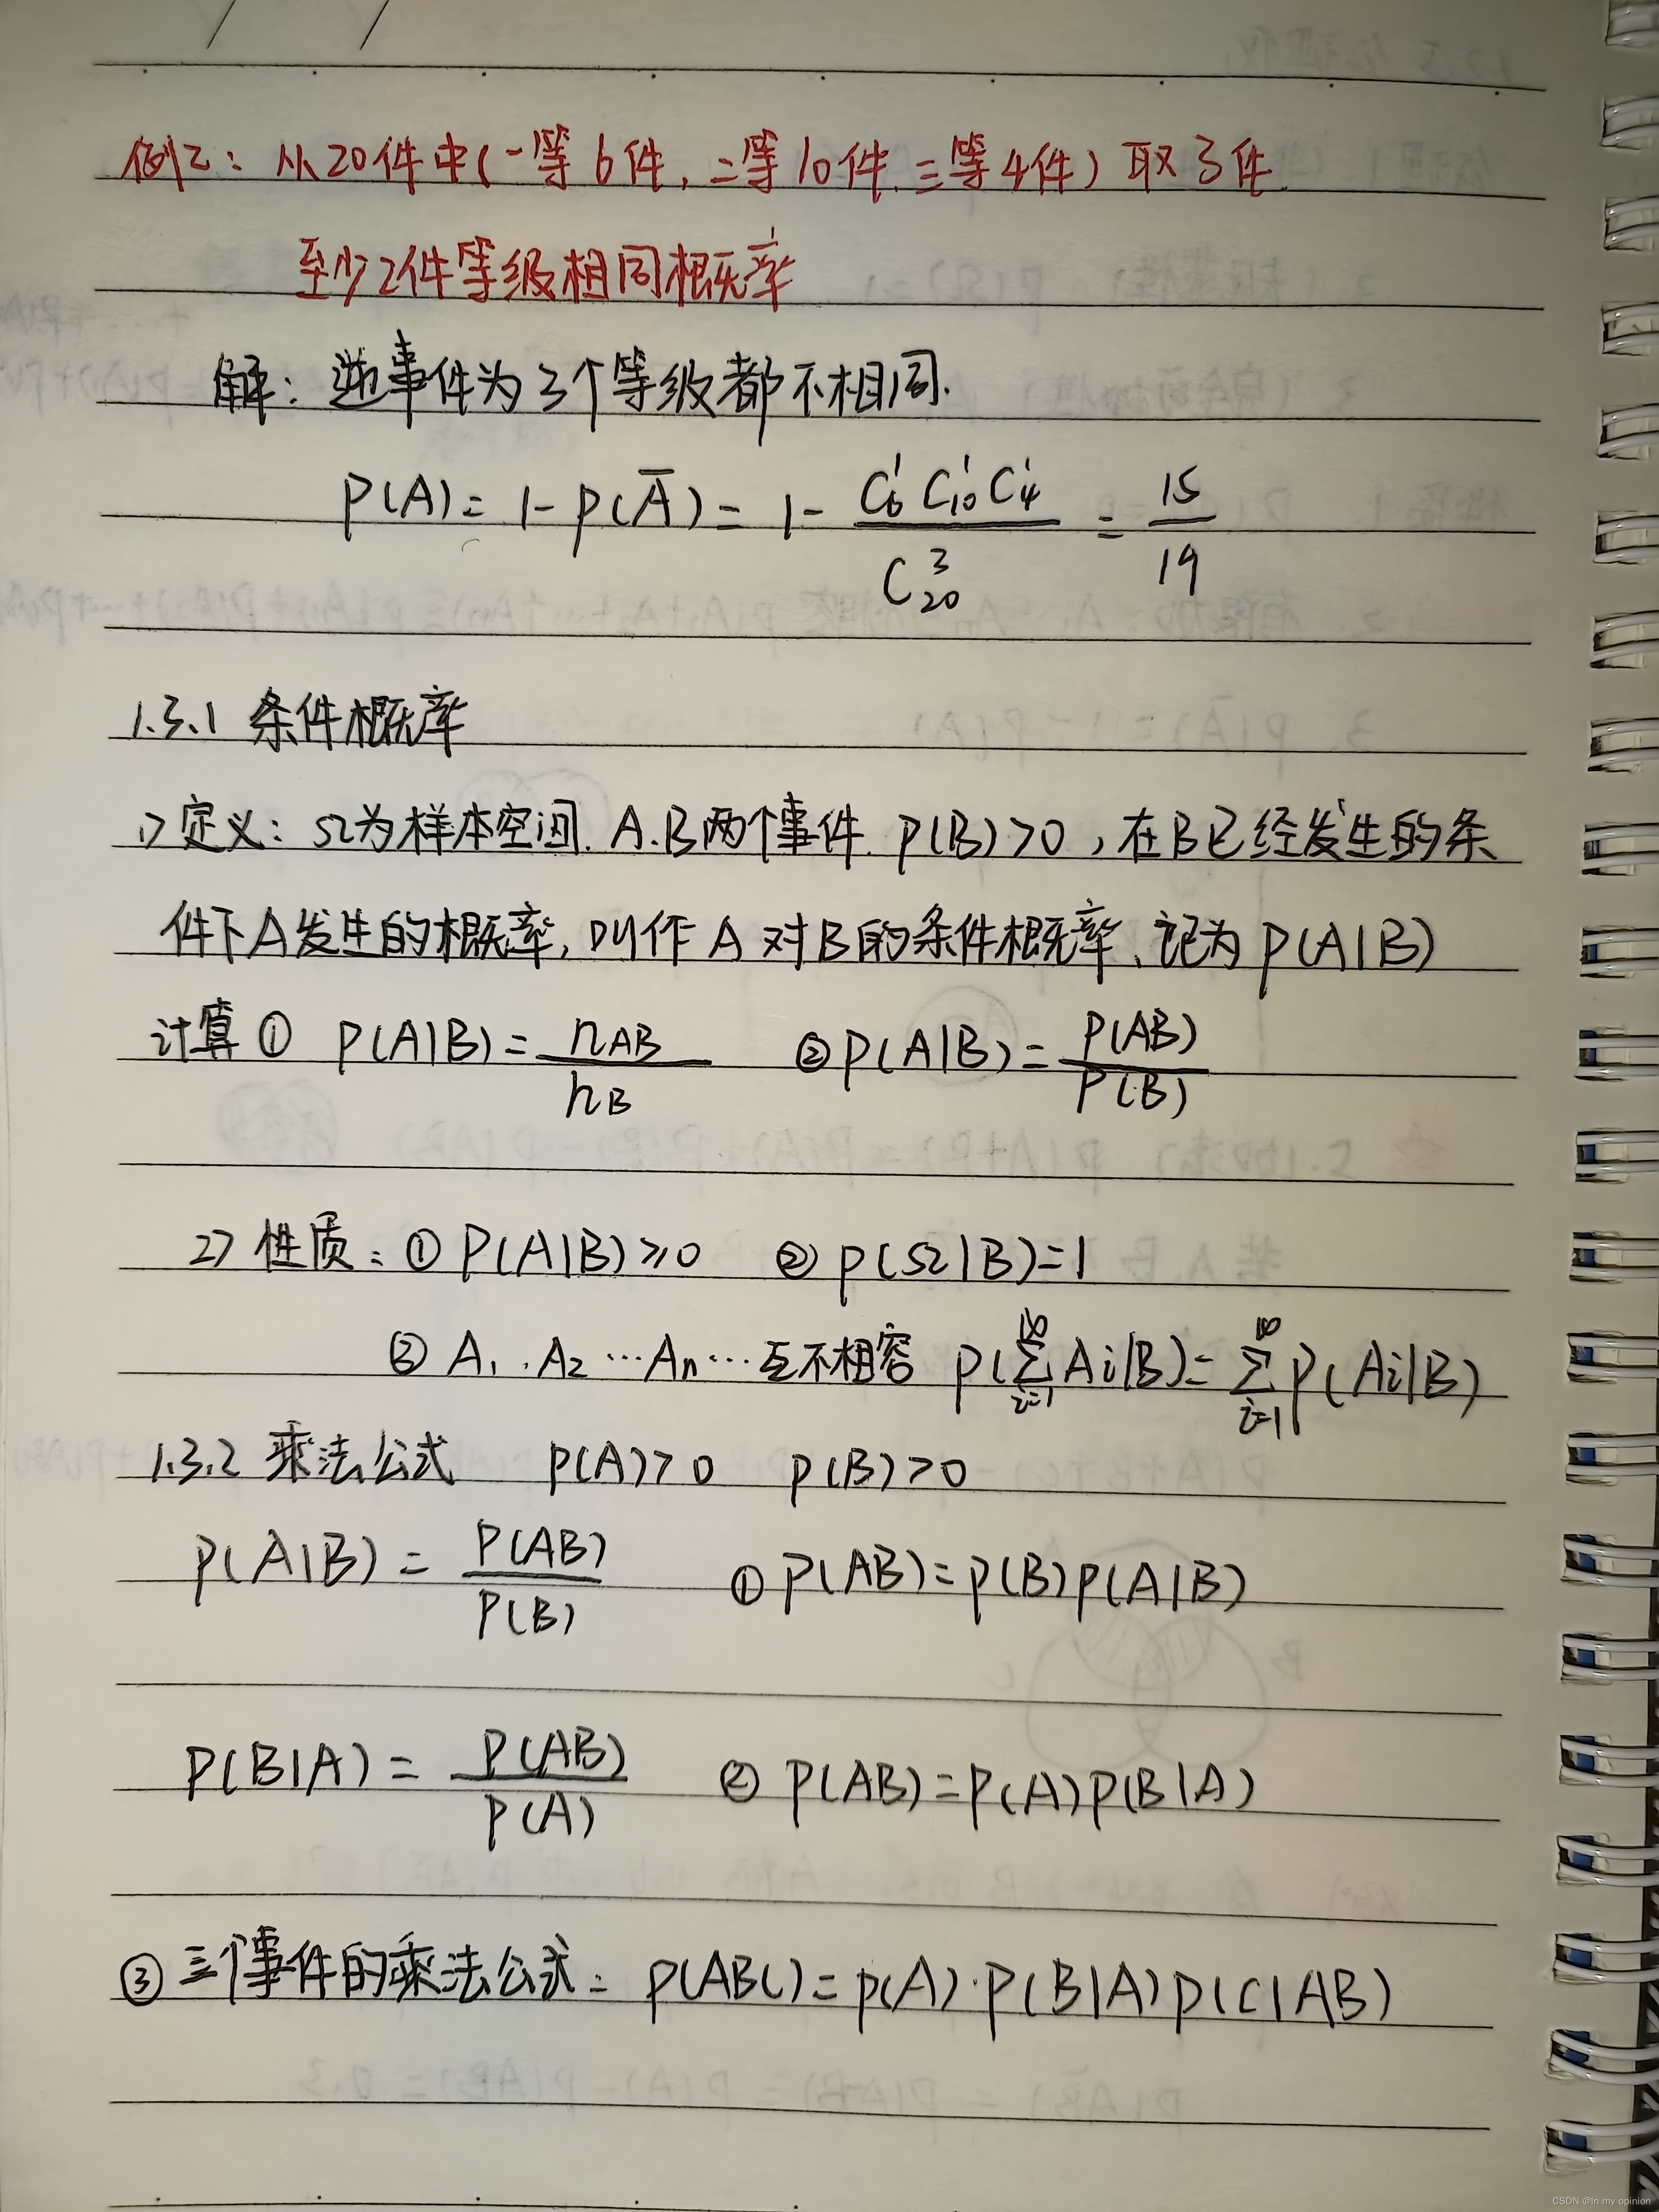 例2：从20件中(一等6件，二等10件.三等4件）取3件.
至少2件等级相同概率
解：逆事件为3个等级都不相同.
P(A)=1-P(A̅)=1-C₆¹C₁₀¹C₄¹/C₂₀³=15/19
1.3.1 条件概率
1) 定义：Ω为样本空间.A.B两个事件.P(B)>0，在B已经发生的条
件下A发生的概率，叫作A对B的条件概率、记为P(A|B)
计算① P(A|B)=n_AB/n_B ②P(A|B)=P(AB)/P(B)
2) 性质：①P(A|B)≥0 ②P(Ω|B)=1
③A₁.A₂…Aₙ…互不相容 P(∑_{i=1}^∞ Ai|B)=∑_{i=1}^∞ P(Ai|B)
1.3.2 乘法公式 P(A)>0 P(B)>0
P(A|B)=P(AB)/P(B) ①P(AB)=P(B)P(A|B)
P(B|A)=P(AB)/P(A) ②P(AB)=P(A)P(B|A)
③三个事件的乘法公式：P(ABC)=P(A)·P(B|A)P(C|AB)
CSDN @In my opinion